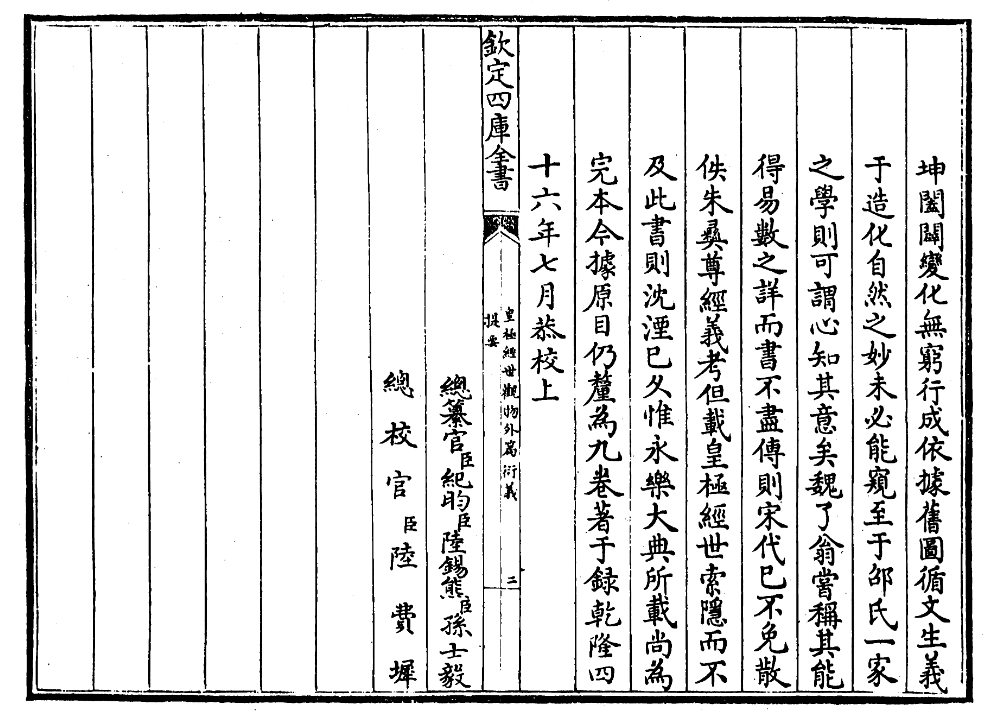 坤闔闢變化無窮行成依據舊圖循文生義
于造化自然之妙未必能窺至于邵氏一家
之學則可謂心知其意矣魏了翁嘗稱其能
得易數之詳而書不盡傳則宋代已不免散
佚朱彝尊經義考但載皇極經世索隱而不
及此書則沈湮已久惟永樂大典所載尚為
完本今據原目仍釐為九卷著于録乾隆四
十六年七月恭校上
欽定四庫全書
皇極經世觀物外篇衍義
提要
二
總纂官臣紀昀臣陸錫熊臣孫士毅
總校官臣陸費墀